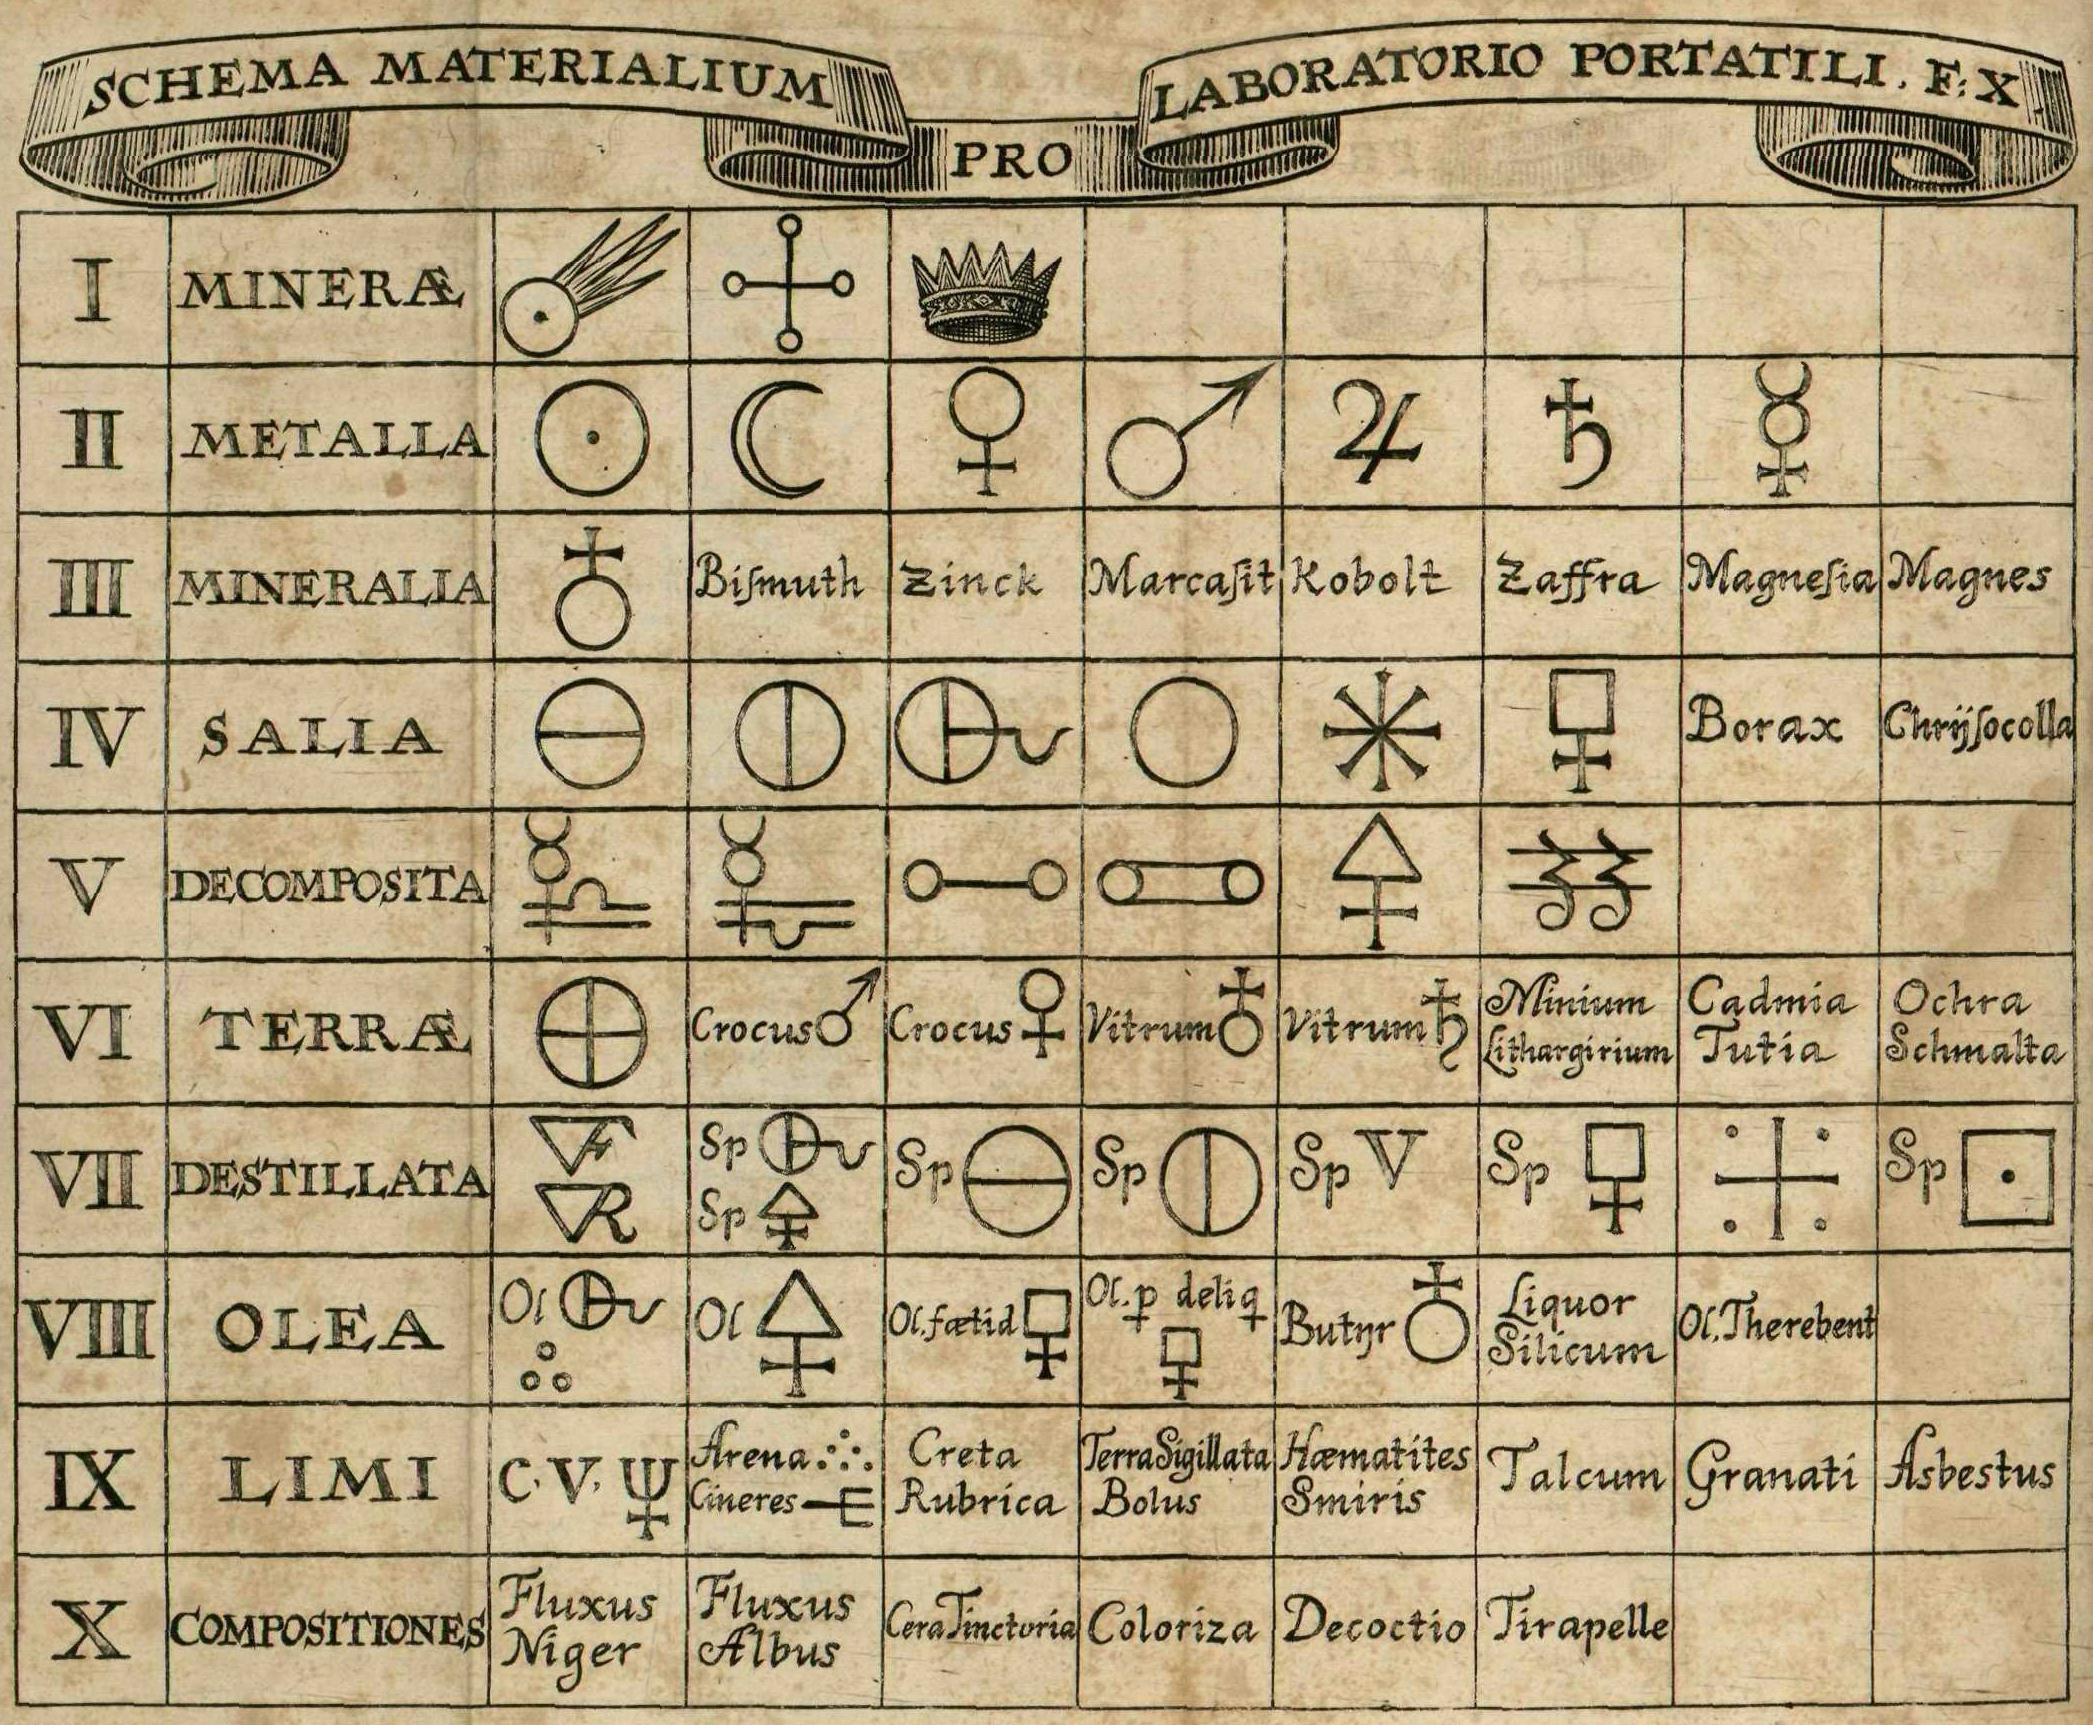 SCHEMA MATERIALIUM PRO LABORATORIO PORTATILI. F: X
I MINERÆ
II METALLA
III MINERALIA Biſmuth Zinck Marcaſit Kobolt Zaffra Magneſia Magnes
IV SALIA Borax Chrÿſocolla
V DECOMPOSITA
VI TERRÆ Crocus♂ Crocus♀ Vitrum♁ Vitrum♄ Minium Cadmia Ochra
Lithargirium Tutia Schmalta
VII DESTILLATA Sp Sp Sp Sp V Sp Sp
Sp
VIII OLEA Ol Ol Ol.fœtid Ol. p deliq Butÿr Liquor Ol.Therebent
Silicum
IX LIMI C.V. Arena Creta Terra Sigillata Hæmatites Talcum Granati Asbestus
Cineres Rubrica Bolus Smiris
X COMPOSITIONES Fluxus Fluxus Cera Tinctoria Coloriza Decoctio Tirapelle
Niger Albus